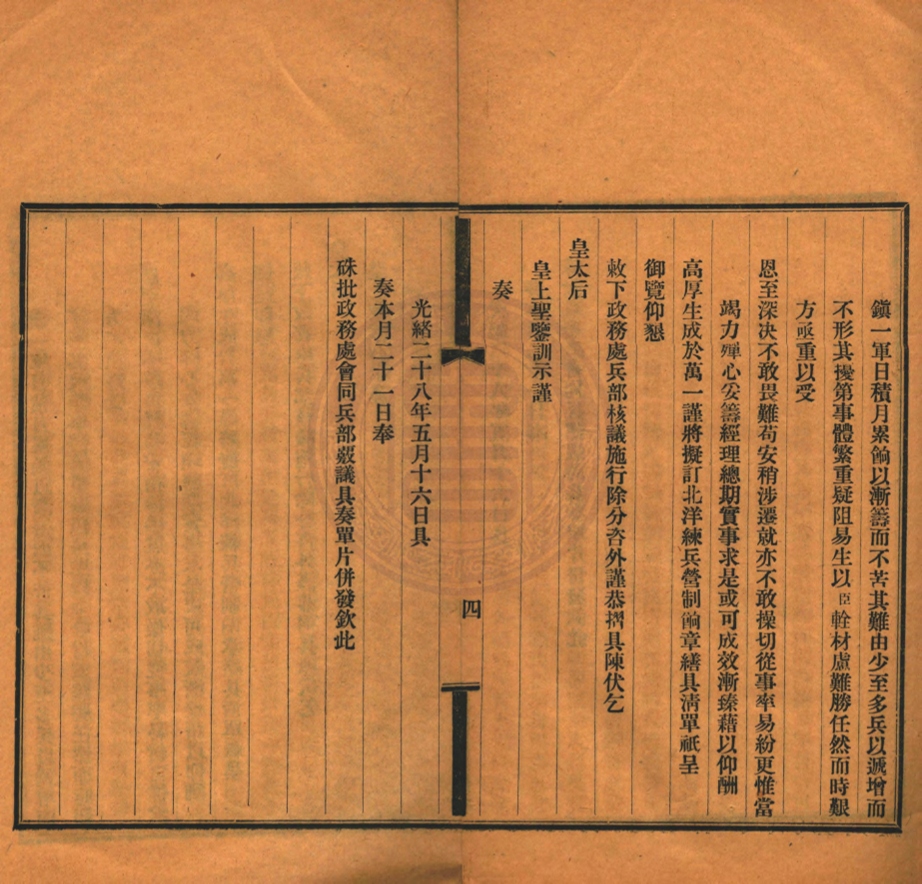 鎭一軍日積月累餉以漸籌而不苦其難由少至多兵以遞增而
不形其擾第事體繁重疑阻易生以臣輇材慮難勝任然而時艱
方亟重以受
恩至深决不敢畏難苟安稍涉遷就亦不敢操切從事率易紛更惟當
竭力殫心妥籌經理總期實事求是或可成效漸臻藉以仰酬
高厚生成於萬一謹將擬訂北洋練兵營制餉章繕具淸單祇呈
御覽仰懇
敕下政務處兵部核議施行除分咨外謹恭摺具陳伏乞
皇太后
皇上聖鑒訓示謹
奏
四
光緒二十八年五月十六日具
奏本月二十一日奉
硃批政務處會同兵部覈議具奏單片併發欽此